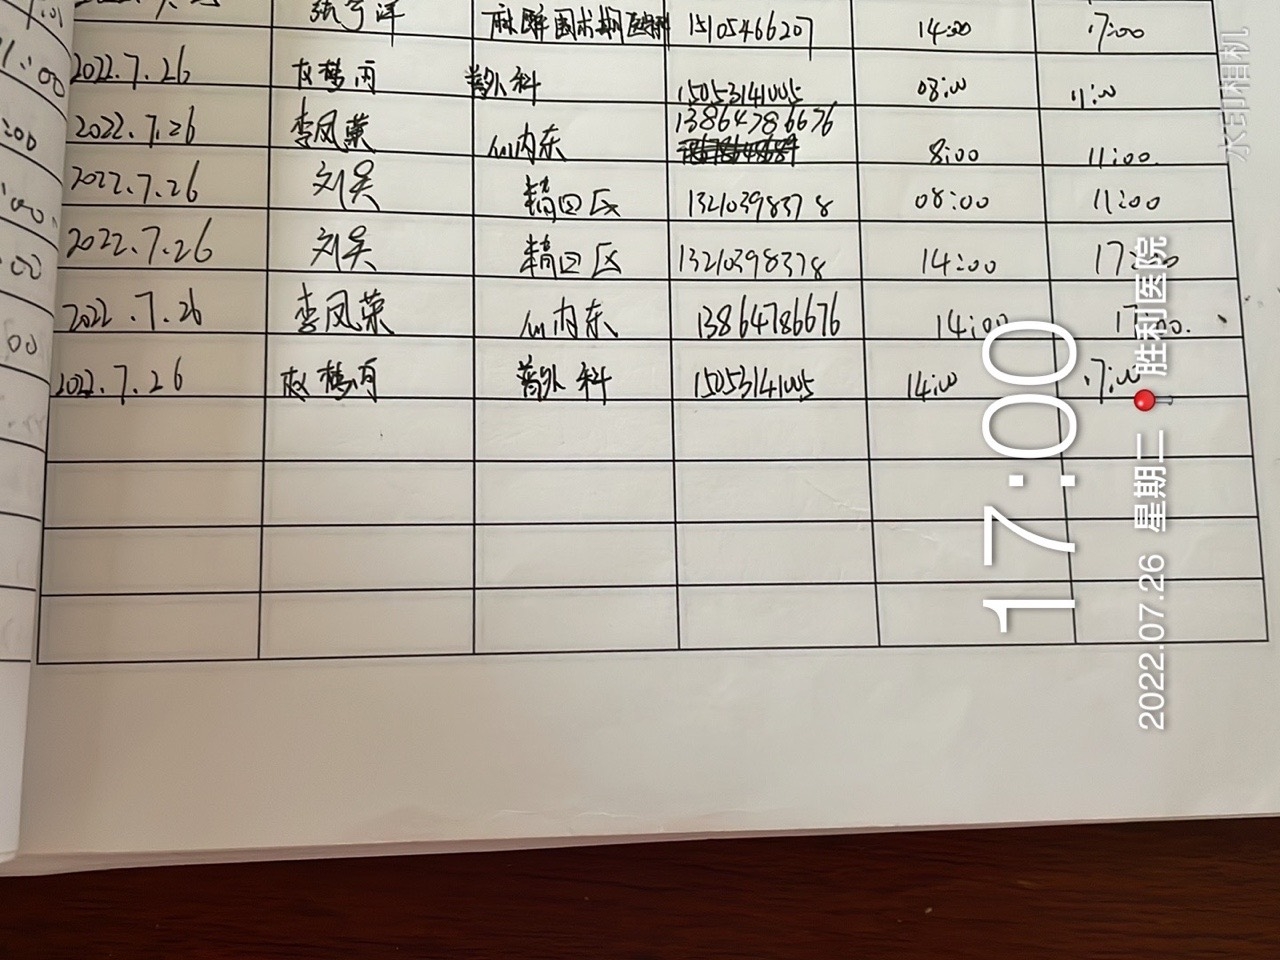 麻醉围术期医学科 15105466207 14:00 17:00
2022.7.26 赵梦雨 普外科 15053141005 08:00 11:00
2022.7.26 李凤荣 心内东 13864786676 8:00 11:00
2022.7.26 刘昊 精四区 13210398378 08:00 11:00
2022.7.26 刘昊 精四区 13210398378 14:00 17:00
2022.7.26 李凤荣 心内东 13864786676 14:00 17:00
2022.7.26 赵梦雨 普外科 15053141005 14:00 17:00
17:00
2022.07.26 星期二 胜利医院
水印相机